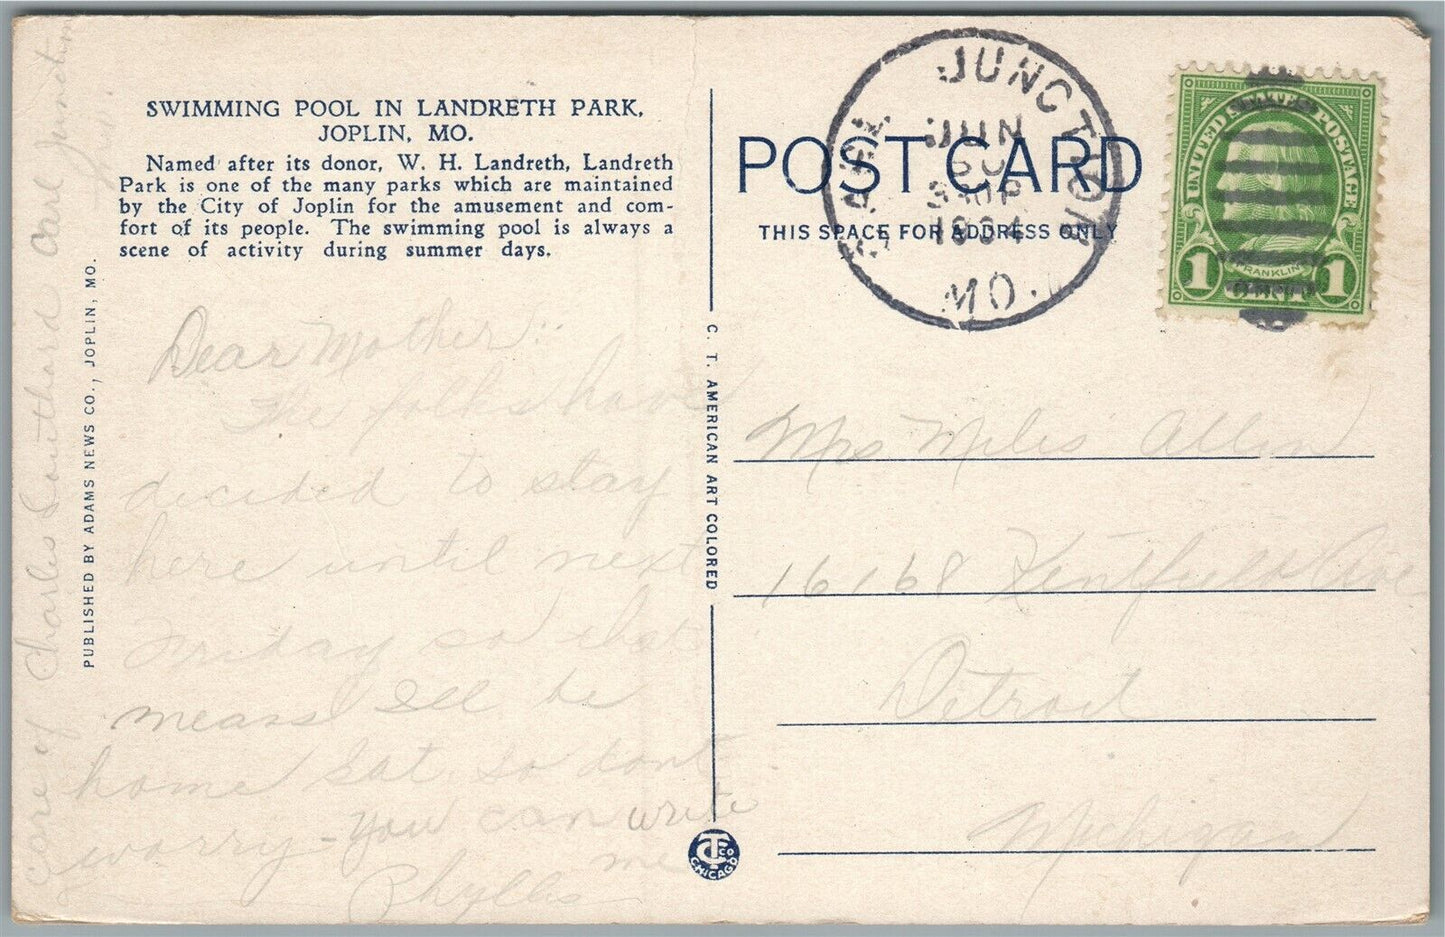 SWIMMING POOL IN LANDRETH PARK,
JOPLIN, MO.
Named after its donor, W. H. Landreth, Landreth
Park is one of the many parks which are maintained
by the City of Joplin for the amusement and com-
fort of its people. The swimming pool is always a
scene of activity during summer days.
Dear Mother:
The folks have
decided to stay
here until next
Friday so that
means I'll be
home Sat. so dont
worry - you can write
me
Phyllis
Care of Charles Southard Carl Junction
Mo.
PUBLISHED BY ADAMS NEWS CO., JOPLIN, MO.
C. T. AMERICAN ART COLORED
CT CO
CHICAGO
POST CARD
THIS SPACE FOR ADDRESS ONLY
CARL JUNCTION
JUN
30
P
1934
MO.
UNITED STATES POSTAGE
FRANKLIN
1 1
Mrs Miles Allen
16168 Kentfield Ave
Detroit
Michigan